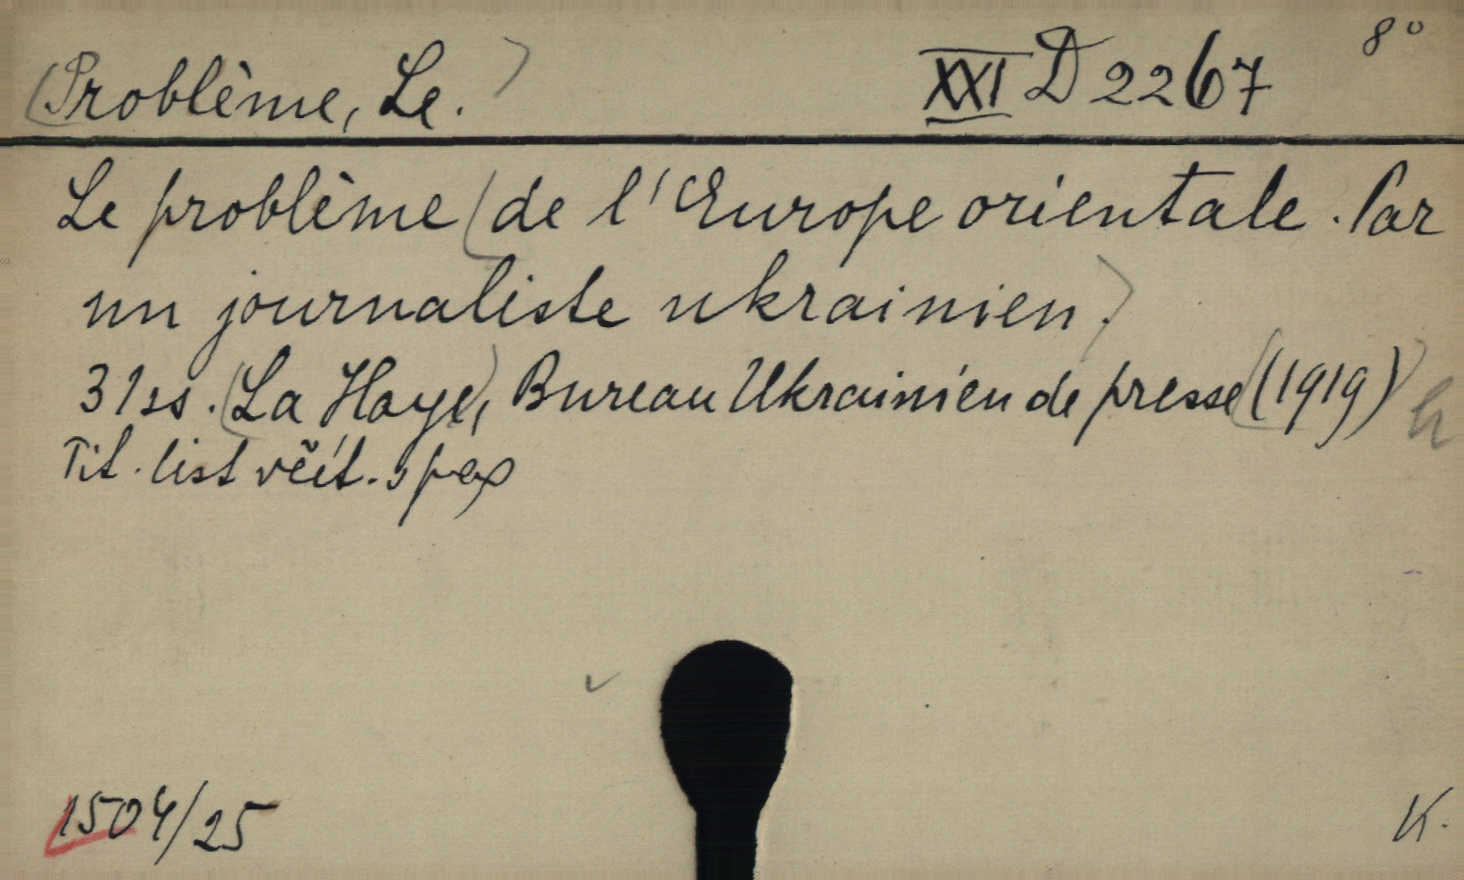 (Problème, Le.) XXI D 2267 8°
Le problème (de l'Europe orientale. Par
un journaliste ukrainien.)
31 ss. (La Haye), Bureau Ukrainien de presse ((1919))
Tit. list včít. s pag
1504/25 K.